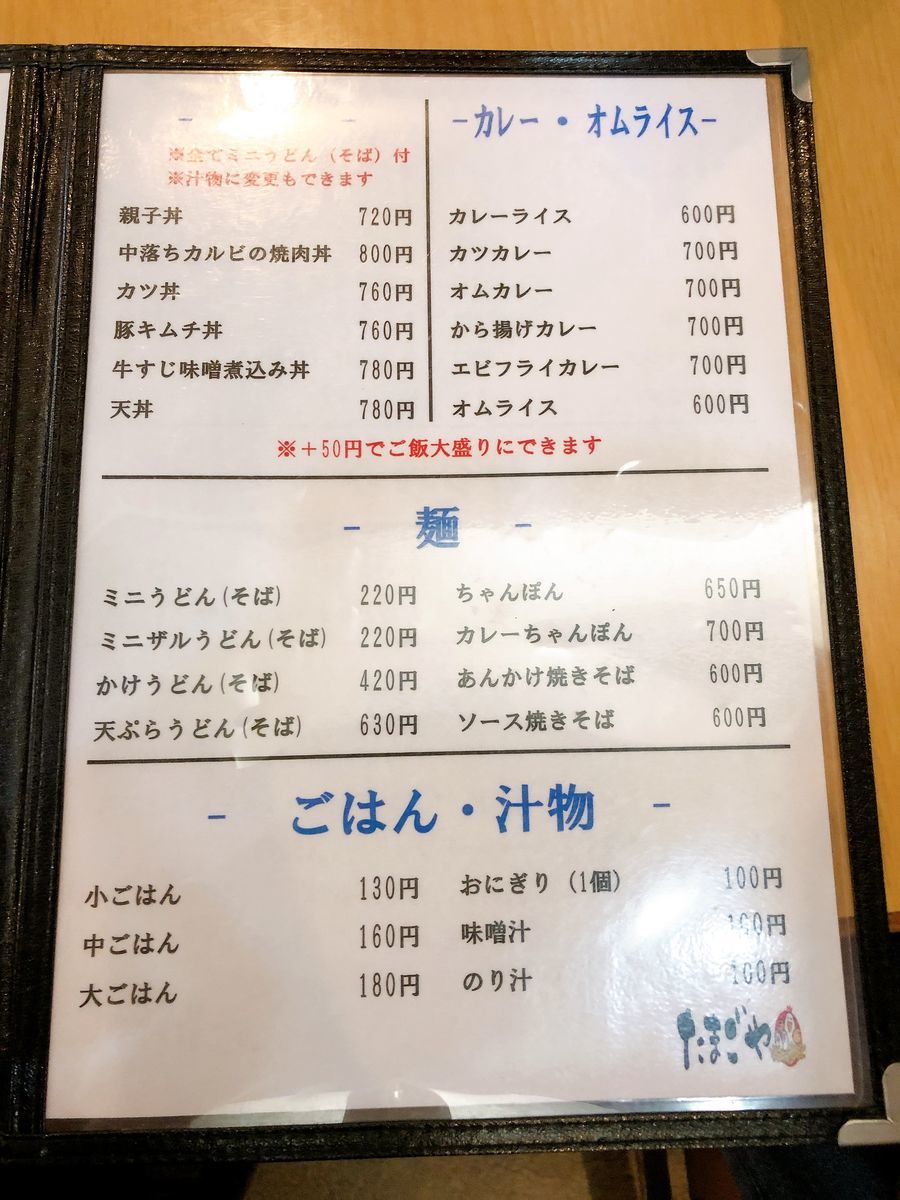 ※全てミニうどん（そば）付
※汁物に変更もできます
親子丼 720円
中落ちカルビの焼肉丼 800円
カツ丼 760円
豚キムチ丼 760円
牛すじ味噌煮込み丼 780円
天丼 780円
-カレー・オムライス-
カレーライス 600円
カツカレー 700円
オムカレー 700円
から揚げカレー 700円
エビフライカレー 700円
オムライス 600円
※＋50円でご飯大盛りにできます
- 麺 -
ミニうどん(そば) 220円
ミニザルうどん(そば) 220円
かけうどん(そば) 420円
天ぷらうどん(そば) 630円
ちゃんぽん 650円
カレーちゃんぽん 700円
あんかけ焼きそば 600円
ソース焼きそば 600円
- ごはん・汁物 -
小ごはん 130円
中ごはん 160円
大ごはん 180円
おにぎり（1個） 100円
味噌汁
のり汁
たまごや